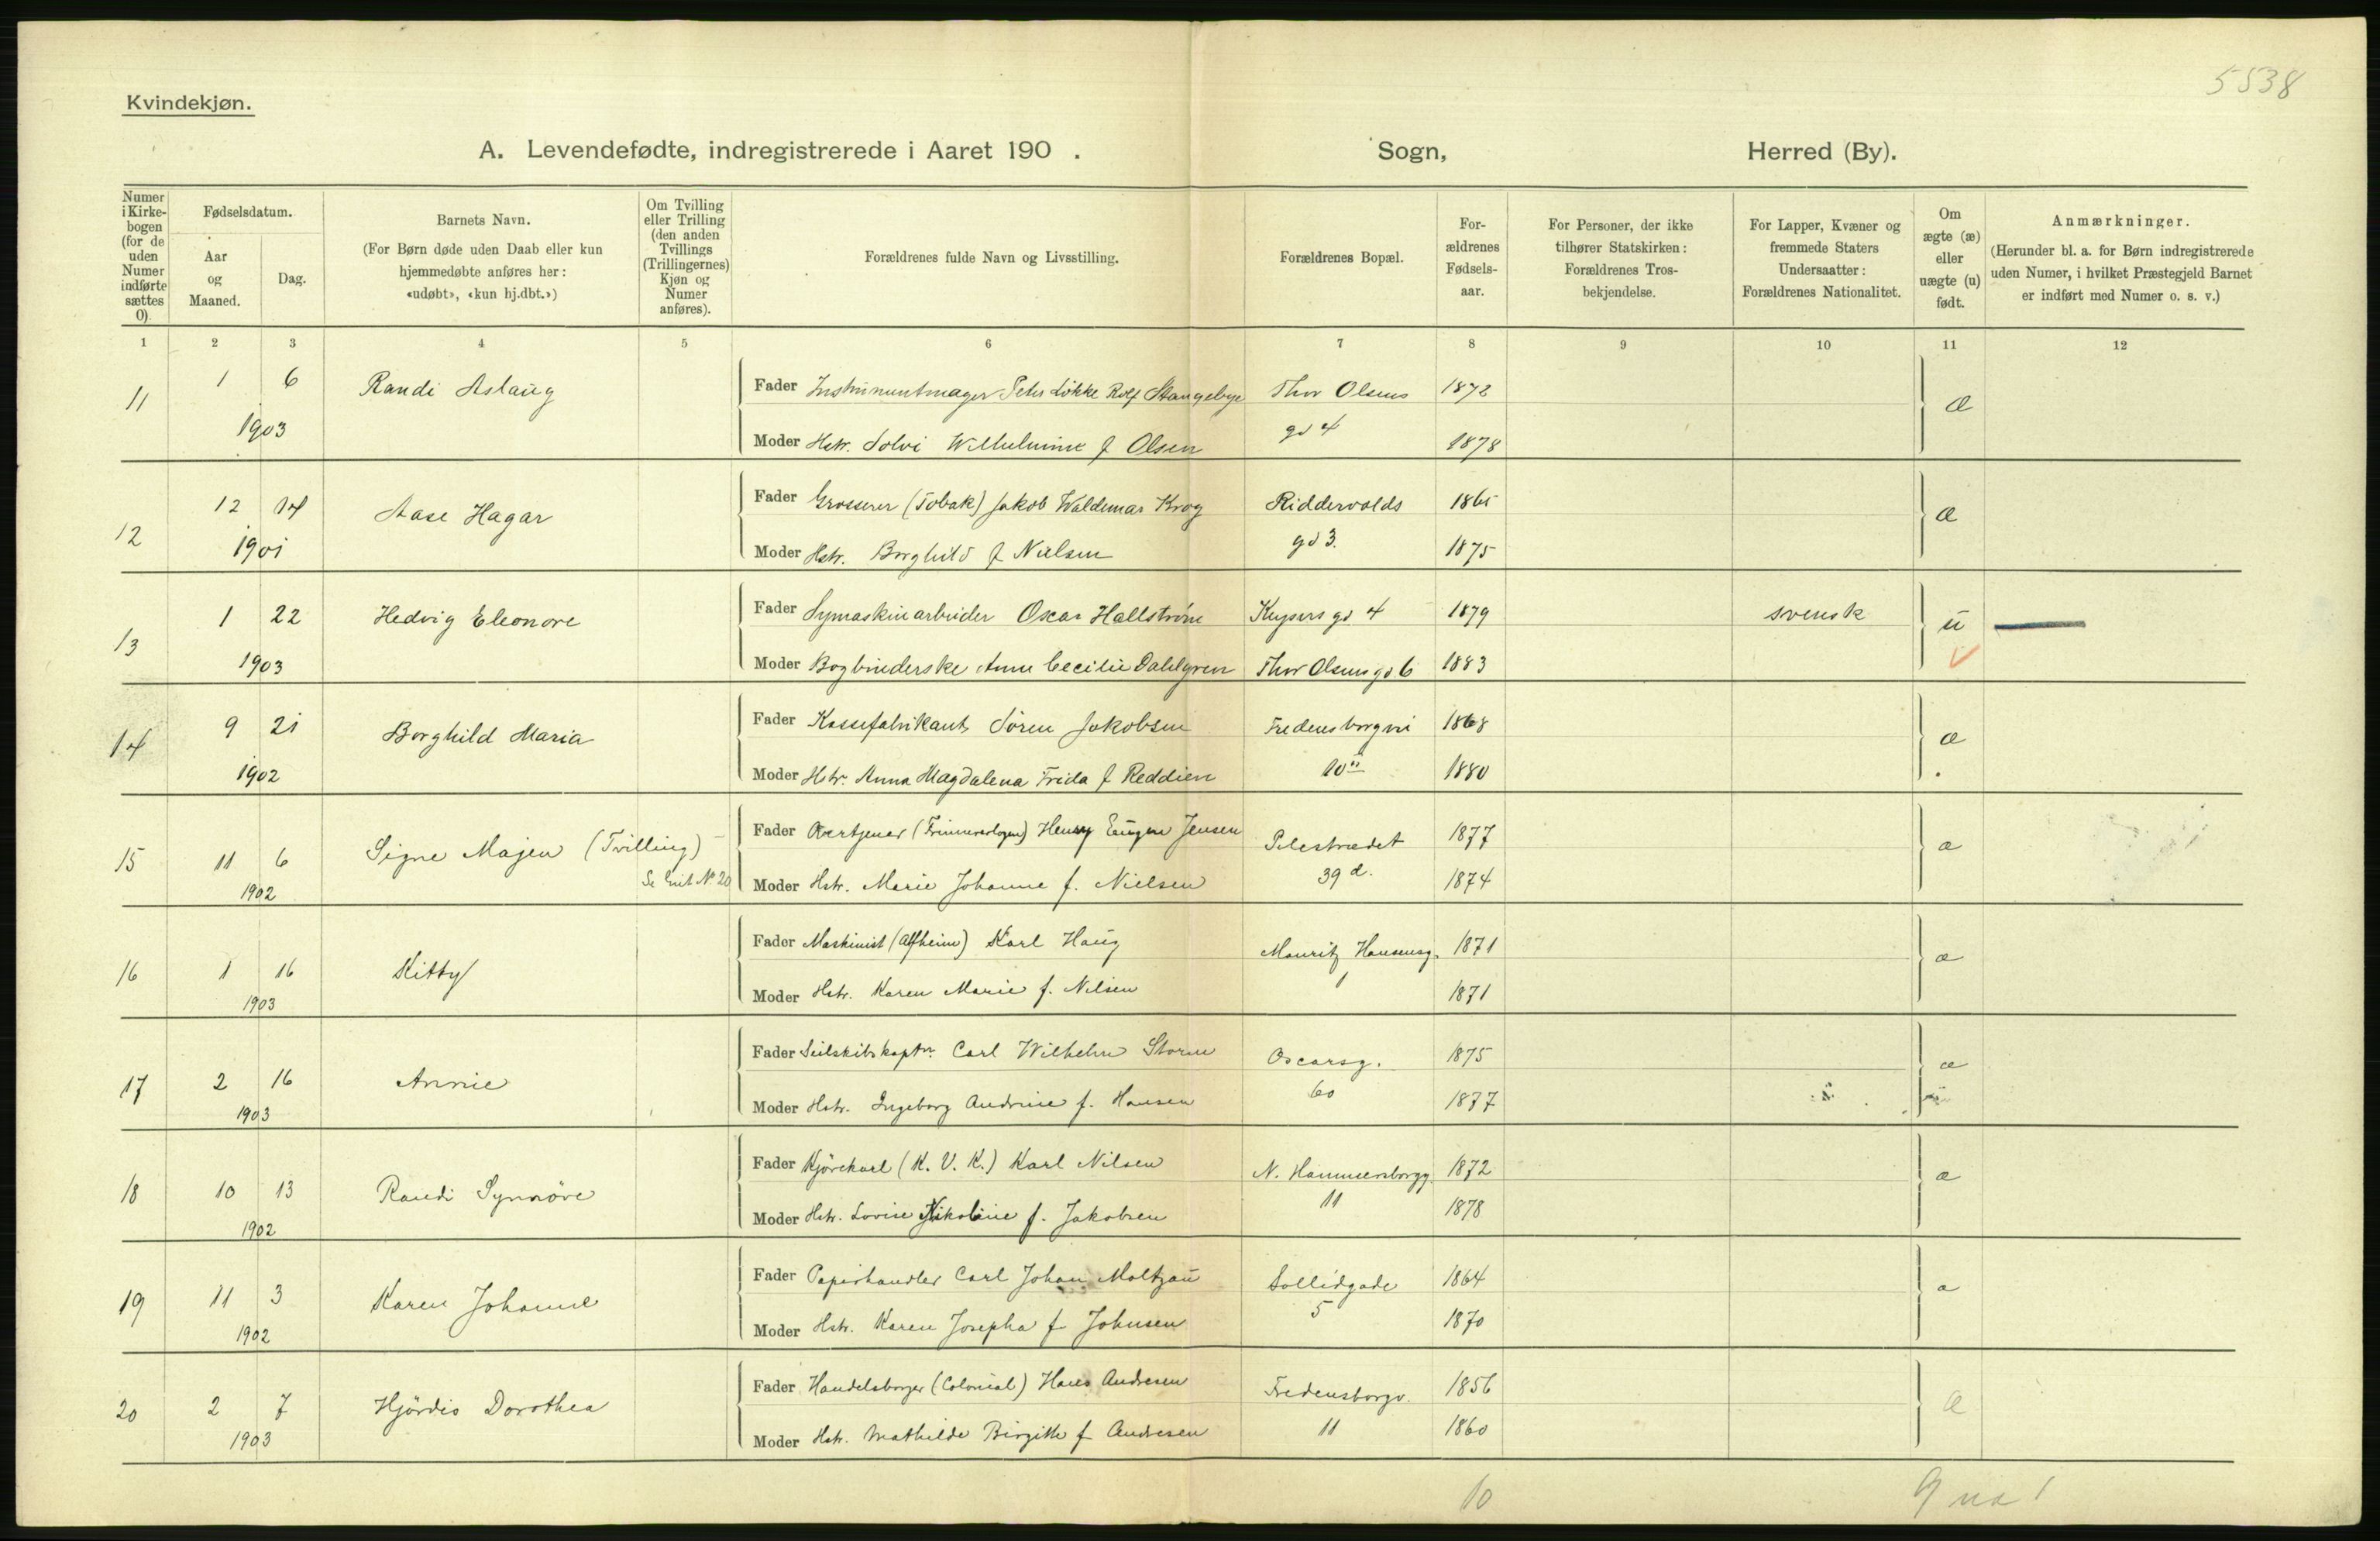 5538
Kvindekjøn.
A. Levendefødte, indregistrerede i Aaret 190 . Sogn, Herred (By).
Numer i Kirke-bogen (for de uden Numer indførte sættes 0).
Fødselsdatum.
Aar og Maaned.
Dag.
Barnets Navn.
(For Børn døde uden Daab eller kun hjemmedøbte anføres her: «udøbt», «kun hj.dbt.»)
Om Tvilling eller Trilling (den anden Tvillings (Trillingernes) Kjøn og Numer anføres).
Forældrenes fulde Navn og Livsstilling.
Forældrenes Bopæl.
For-ældrenes Fødsels-aar.
For Personer, der ikke tilhører Statskirken: Forældrenes Tros-bekjendelse.
For Lapper, Kvæner og fremmede Staters Undersaatter: Forældrenes Nationalitet.
Om ægte (æ) eller uægte (u) født.
Anmærkninger.
(Herunder bl. a. for Børn indregistrerede uden Numer, i hvilket Præstegjeld Barnet er indført med Numer o. s. v.)
1 2 3 4 5 6 7 8 9 10 11 12
11 1 6 1903 Randi Aslaug
Fader Instrumentmager Peter Løkke Rolf Stangebye Thor Olsens 1872 æ
Moder Hstr. Solvi Wilhelmine f Olsen gd 4 1878
12 12 14 1901 Aase Hagar
Fader Grosserer (Tobak) Jakob Waldemar Krog Riddervolds 1865 æ
Moder Hstr. Borghild f Nielsen gd 3. 1875
13 1 22 1903 Hedvig Eleonore
Fader Symaskinarbeider Oscar Hallstrøm Keysers gd 4 1879 svensk u
Moder Bogbinderske Anna Cecilie Dahlgren Thor Olsens gd 6 1883
14 9 21 1902 Borghild Maria
Fader Kassefabrikant Søren Jakobsen Fredensborgvei 1868 æ
Moder Hstr. Anna Magdalena Frida f Reddien 10 1880
15 11 6 1902 Signe Majen (Tvilling) Se Gut No 20
Fader Overtjener (Frimurerlogen) Henry Eugen Jensen Pilestrædet 1877 æ
Moder Hstr. Marie Johanne f. Nielsen 39 d. 1874
16 1 16 1903 Kitty
Fader Maskinist (Alfheim) Karl Haug Mauritz Hansensg. 1871 æ
Moder Hstr. Karen Marie f. Nilsen 1 1871
17 2 16 1903 Annie
Fader Seilskibskaptn. Carl Wilhelm Storm Oscarsg. 1875 æ
Moder Hstr. Ingeborg Andrine f. Hansen 60 1877
18 10 13 1902 Randi Synnöve
Fader Kjörekarl (K. V. K.) Karl Nilsen N. Hammersborgg. 1872 æ
Moder Hstr. Lovise Nikoline f. Jakobsen 11 1878
19 11 3 1902 Karen Johanne
Fader Papirhandler Carl Johan Moltzau Sollidgade 1864 æ
Moder Hstr. Karen Josepha f Johnsen 5 1870
20 2 7 1903 Hjördis Dorothea
Fader Handelsborger (Colonial) Hans Andresen Fredensborgv. 1856 æ
Moder Hstr. Mathilde Birgitte f Andresen 11 1860
10 9 1